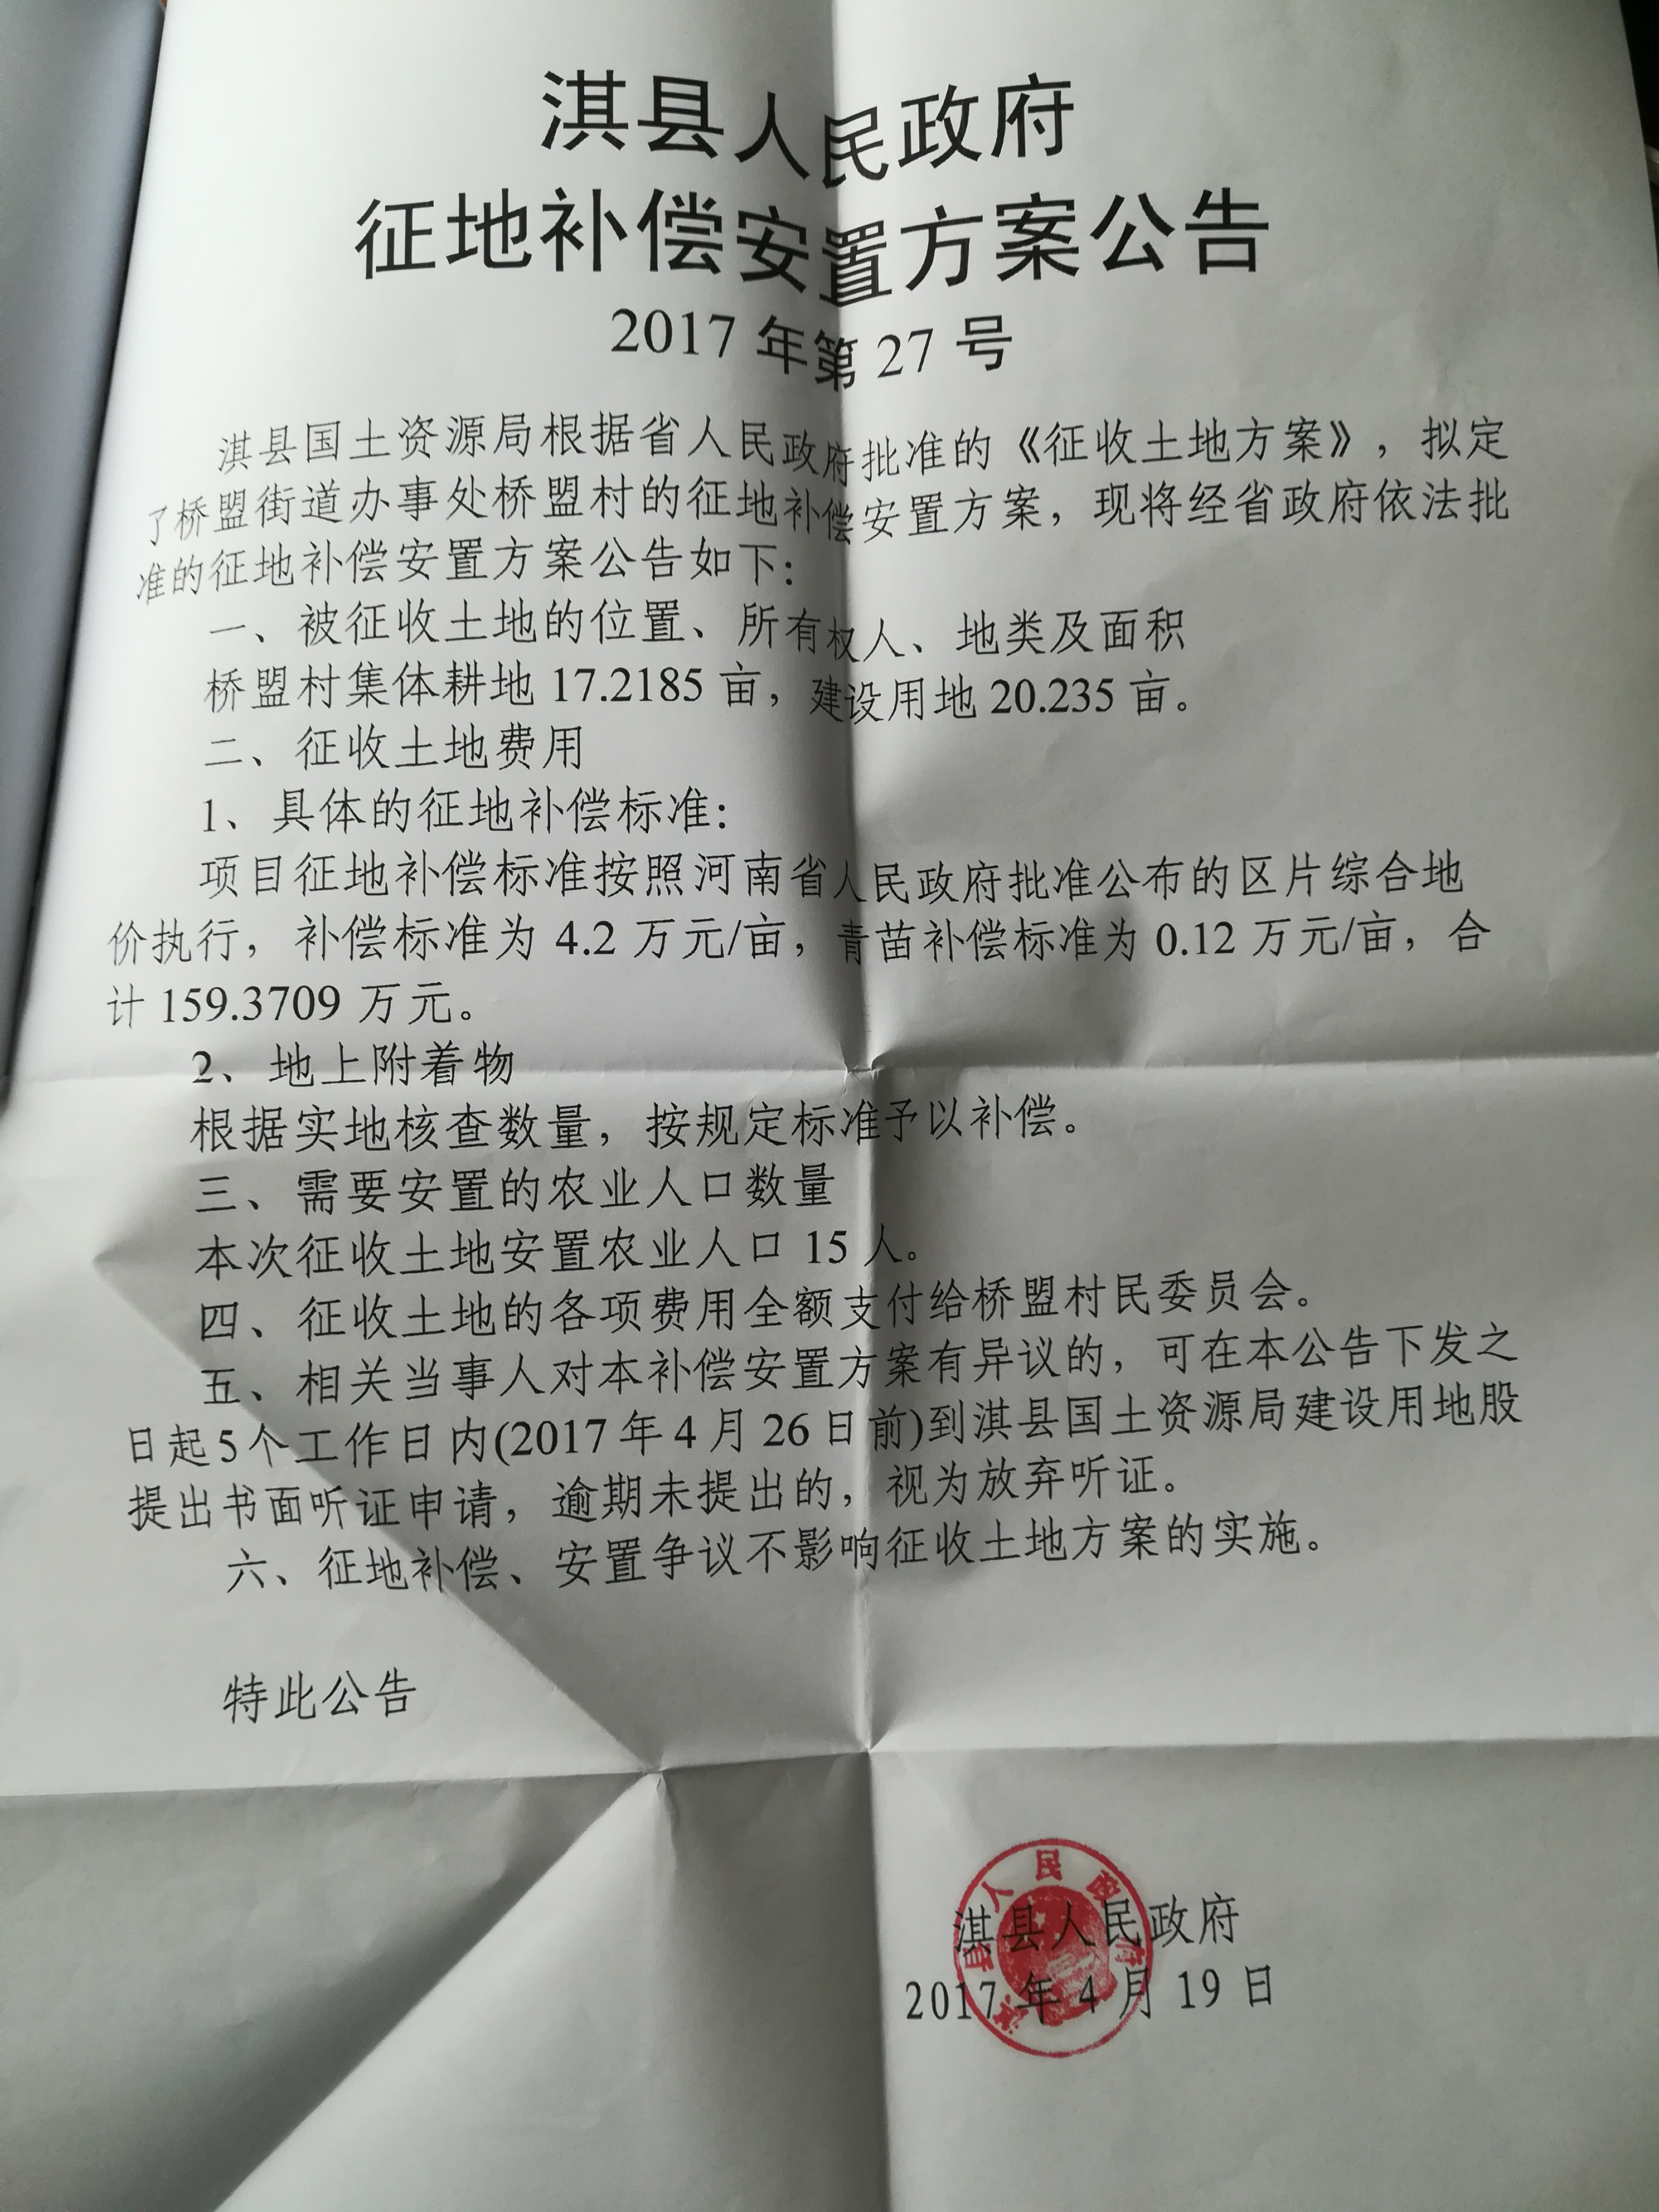 淇县人民政府
征地补偿安置方案公告
2017 年第 27 号
淇县国土资源局根据省人民政府批准的《征收土地方案》，拟定
了桥盟街道办事处桥盟村的征地补偿安置方案，现将经省政府依法批
准的征地补偿安置方案公告如下：
一、被征收土地的位置、所有权人、地类及面积
桥盟村集体耕地 17.2185 亩，建设用地 20.235 亩。
二、征收土地费用
1、具体的征地补偿标准：
项目征地补偿标准按照河南省人民政府批准公布的区片综合地
价执行，补偿标准为 4.2 万元/亩，青苗补偿标准为 0.12 万元/亩，合
计 159.3709 万元。
2、地上附着物
根据实地核查数量，按规定标准予以补偿。
三、需要安置的农业人口数量
本次征收土地安置农业人口 15 人。
四、征收土地的各项费用全额支付给桥盟村民委员会。
五、相关当事人对本补偿安置方案有异议的，可在本公告下发之
日起 5 个工作日内(2017 年 4 月 26 日前)到淇县国土资源局建设用地股
提出书面听证申请，逾期未提出的，视为放弃听证。
六、征地补偿、安置争议不影响征收土地方案的实施。
特此公告
淇县人民政府
淇县人民政府
2017 年 4 月 19 日